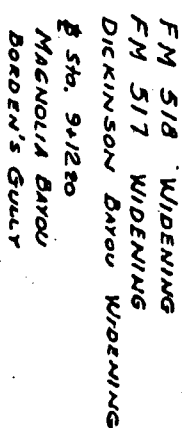 FM 518 WIDENING
FM 517 WIDENING
DICKINSON BAYOU WIDENING
@ STA. 9+1220
MAGNOLIA BAYOU
BORDEN'S GULLY